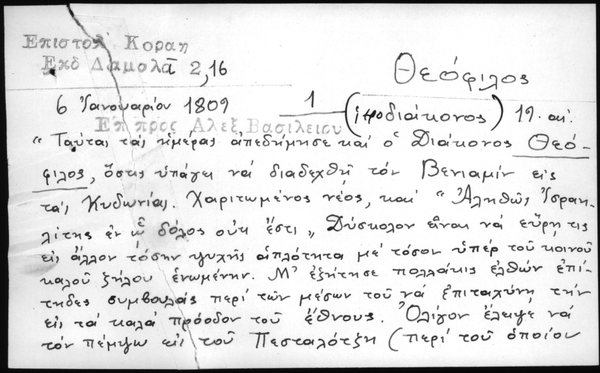 Επιστολ Κοραη
Εκδ Δαμαλᾶ 2,16
Θεόφιλος
6 Ἰανουαρίου 1809 1 (ἱεροδιάκονος) 19. αἰ.
Επ προς Αλεξ Βασιλειου
"Ταύτας τὰς ἡμέρας ἀπεδήμησε καὶ ὁ Διάκονος Θεό-
φιλος, ὅστις ὑπάγει νὰ διαδεχθῇ τὸν Βενιαμὶν εἰς
τὰς Κυδωνίας. Χαριτωμένος νέος, καὶ "Ἀληθῶς Ἰσραη-
λίτης ἐν ᾧ δόλος οὐκ ἔστι" Δύσκολον εἶναι νὰ εὕρῃ τις
εἰς ἄλλον τόσην ψυχῆς ἁπλότητα μὲ τόσον ὑπὲρ τοῦ κοινοῦ
καλοῦ ζῆλον ἑνωμένην. Μ' ἐζήτησε πολλάκις ἐλθὼν ἐπί-
τηδες συμβουλὰς περὶ τῶν μέσων τοῦ νὰ ἐπιταχύνῃ τὴν
εἰς τὰ καλὰ πρόοδον τοῦ ἔθνους. Ὀλίγον ἔλειψε νὰ
τὸν πέμψω εἰς τοῦ Πεσταλότζη (περὶ τοῦ ὁποίου